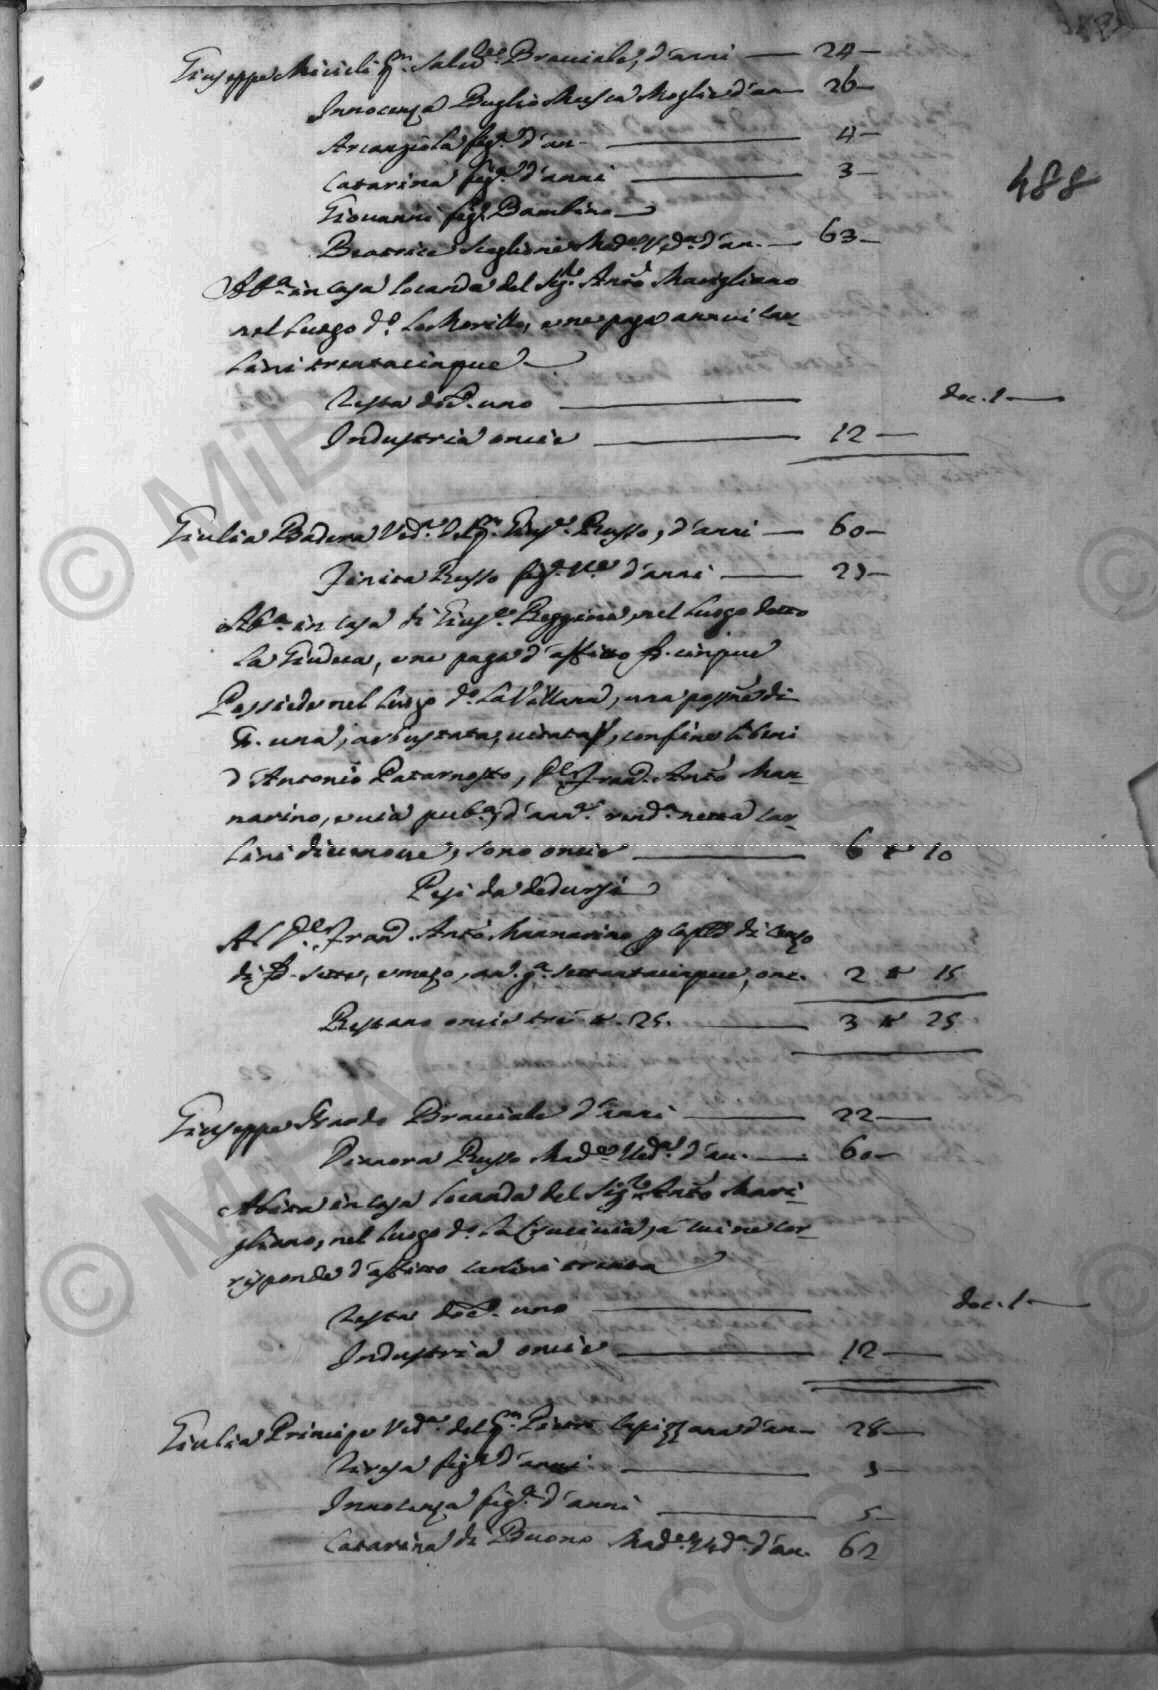 488
Giuseppe Miceli qm. Salv.re Bracciale, d'anni — 24 —
Innocenza Buglio Musca Moglie d'an — 26 —
Arcangiola fig.a d'an — 4 —
Catarina fig.a d'anni — 3 —
Giovanni fig. Bambino —
Beatrice Scaglione Mad.e Ved.a d'an. — 63 —
Ab.a in casa locanda del Sig.r Ant.o Marigliano
nel luogo d.o Lo Morillo, e ne paga annui car-
lini trentacinque —
Testa doc. uno — doc. 1 —
Industria oncie — 12 —
Giulia Badera Ved.a del qm. Gius.e Russo, d'anni — 60 —
Russo fig.a d'anni — 23 —
Ab.a in casa di Gius.e Reggina, nel luogo detto
la Giudeca, e ne paga d'affitto cinque
Possiede nel luogo d.o La Villana, una poss.ne di
una, arbustata, vitata, confine li beni
d'Antonio Patarnosto, Fran. Ant.o Man-
narino, e via pub.a, d'ann. rend.a netta car-
lini diecenove, sono oncie — 6 10
Pesi da dedursi
Al Fran. Ant.o Mannarino cap.le di censo
di sette, e mezo, an. g.a settantacinque, onc. 2 15
Restano oncie tre 25. — 3 25
Giuseppe Bracciale d'anni — 22 —
Dianora Russo Mad.e Ved.a d'an. — 60 —
Abita in casa locanda del Sig.r Ant.o Mari-
gliano, nel luogo d.o La a cui ne cor-
risponde d'affitto carlini trenta
Testa doc. uno — doc. 1 —
Industria oncie — 12 —
Giulia Principe Ved.a del qm. Pietro Capizzano d'an — 28 —
Teresa fig.a d'anni — 3 —
Innocenza fig.a d'anni — 5 —
Catarina di Buono Mad.e Ved.a d'an. 62
© MiBAC ASCS